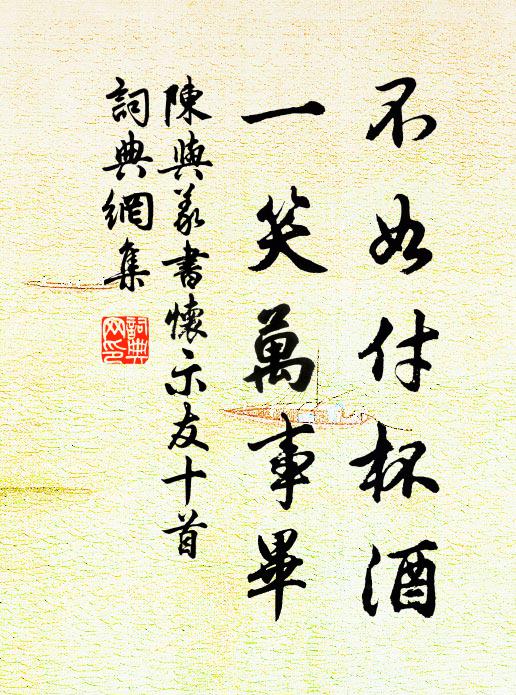 不如付杯酒
一笑萬事畢
陳與義書懷示友十首
詞典網集
詞典網印